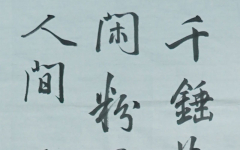 千錘
闲粉
人间